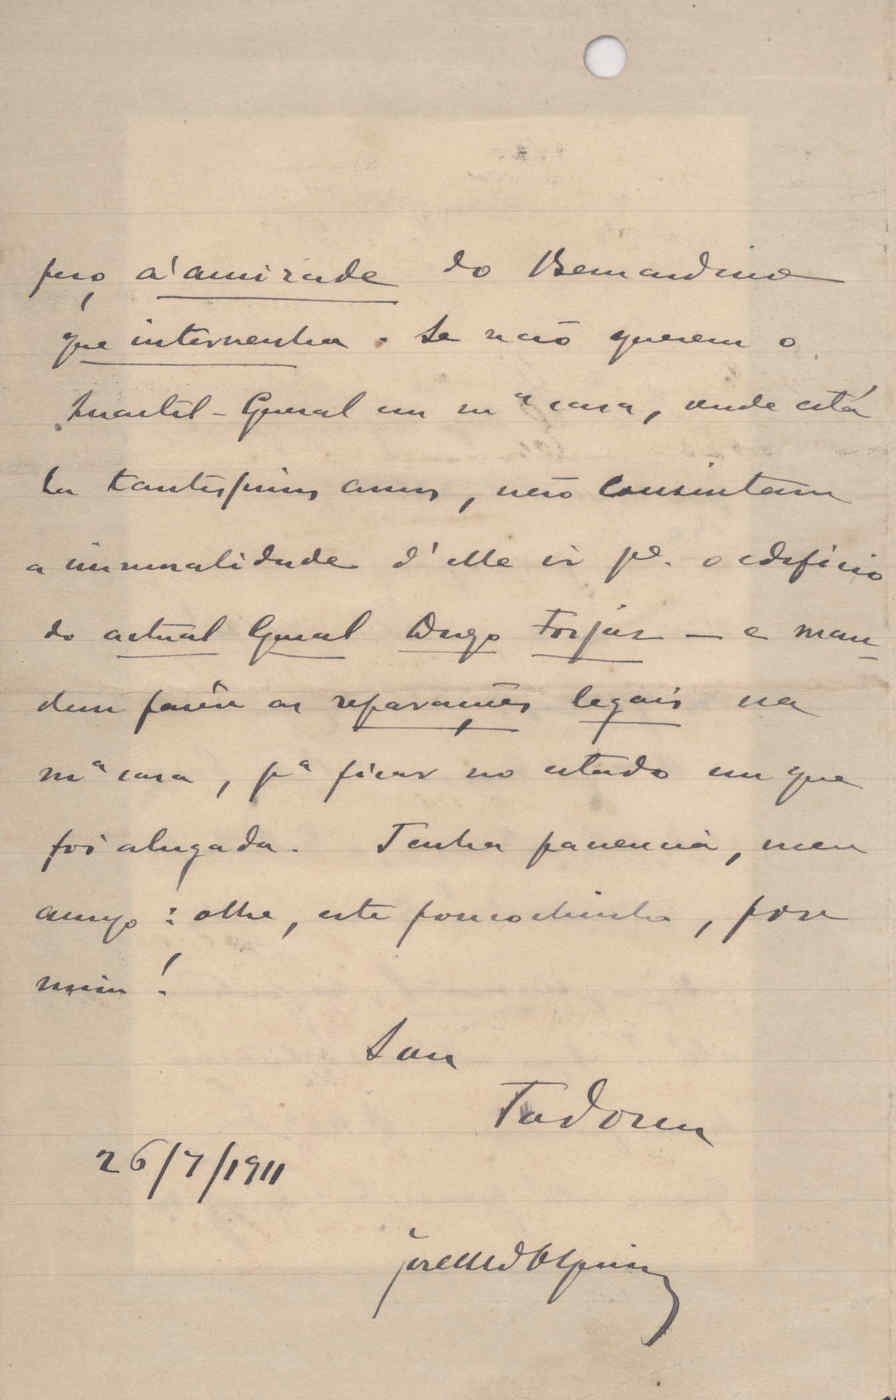 peço á amizade do Bernardino
que intervenha. Se não querem o
Quartel-General em mª casa, onde está
ha tantissimos annos, não consintam
a immoralidade d'elle ir pª. o edificio
do actual General Diogo Forjaz — e man-
dem fazêr as reparações legais na
mª casa, pª ficar no estado em que
foi alugada. Tenha paciencia, meu
amigo: olhe, este poucochinho, por
mim!
Sou
26/7/1911